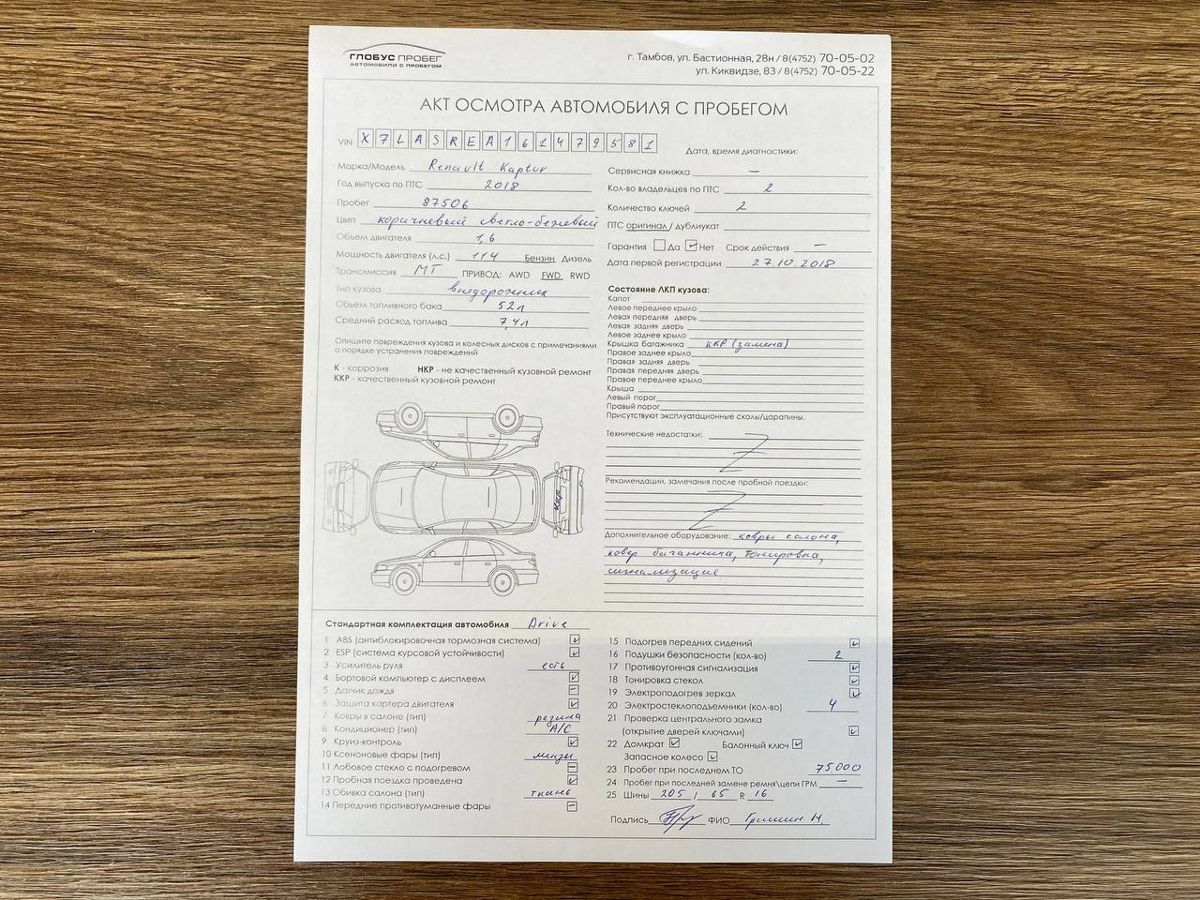 ГЛОБУС ПРОБЕГ
АВТОМОБИЛИ С ПРОБЕГОМ
г. Тамбов, ул. Бастионная, 28н / 8(4752) 70-05-02
ул. Киквидзе, 83 / 8(4752) 70-05-22
АКТ ОСМОТРА АВТОМОБИЛЯ С ПРОБЕГОМ
VIN X7LASREA161479581
Дата, время диагностики:
Марка/Модель Renault Kaptur
Год выпуска по ПТС 2018
Пробег 87506
Цвет коричневый светло-бежевый
Объем двигателя 1,6
Мощность двигателя (л.с.) 114 Бензин Дизель
Трансмиссия МТ ПРИВОД: AWD FWD RWD
Тип кузова внедорожник
Объем топливного бака 52л
Средний расход топлива 7,4л
Опишите повреждения кузова и колесных дисков с примечаниями
о порядке устранения повреждений
К - коррозия НКР - не качественный кузовной ремонт
ККР - качественный кузовной ремонт
ККР
Сервисная книжка —
Кол-во владельцев по ПТС 2
Количество ключей 2
ПТС оригинал / дубликат
Гарантия Да Нет Срок действия —
Дата первой регистрации 27.10.2018
Состояние ЛКП кузова:
Капот
Левое переднее крыло
Левая передняя дверь
Левая задняя дверь
Левое заднее крыло
Крышка багажника ККР (замена)
Правое заднее крыло
Правая задняя дверь
Правая передняя дверь
Правое переднее крыло
Крыша
Левый порог
Правый порог
Присутствуют эксплуатационные сколы/царапины.
Технические недостатки:
Рекомендации, замечания после пробной поездки:
Дополнительное оборудование: ковры салона,
ковер багажника, тонировка,
сигнализация
Стандартная комплектация автомобиля Drive
1 ABS (антиблокировочная тормозная система)
2 ESP (система курсовой устойчивости)
3 Усилитель руля есть
4 Бортовой компьютер с дисплеем
5 Датчик дождя
6 Защита картера двигателя
7 Ковры в салоне (тип) резина
8 Кондиционер (тип) A/C
9 Круиз-контроль
10 Ксеноновые фары (тип) линзы
11 Лобовое стекло с подогревом
12 Пробная поездка проведена
13 Обивка салона (тип) ткань
14 Передние противотуманные фары
15 Подогрев передних сидений
16 Подушки безопасности (кол-во) 2
17 Противоугонная сигнализация
18 Тонировка стекол
19 Электроподогрев зеркал
20 Электростеклоподъемники (кол-во) 4
21 Проверка центрального замка
(открытие дверей ключами)
22 Домкрат Балонный ключ
Запасное колесо
23 Пробег при последнем ТО 75000
24 Пробег при последней замене ремня\цепи ГРМ —
25 Шины 205 / 65 R 16
Подпись ФИО Гришин Н.